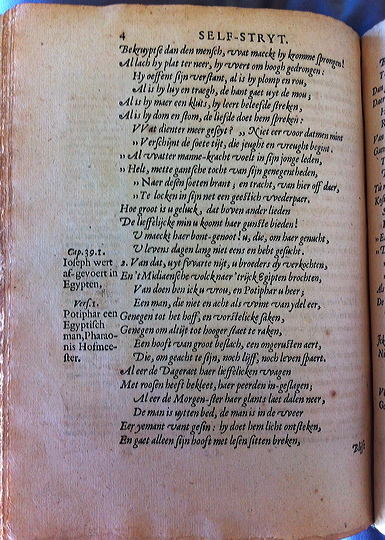 4 SELF-STRYT.
Bekruyptse dan den mensch, vvat maeckt hy kromme sprongen!
Al lach hy plat ter neer, hy vvert om hoogh gedrongen:
Hy oeffent sijn verstant, al is hy plomp en rou,
Al is hy luy en traegh, de hant gaet uyt de mou;
Al is hy maer een kluts, hy leert beleefde streken,
Al is hy dom en stom, de liefde doet hem spreken:
VVat dienter meer geseyt? „ Niet eer voor datmen mint
„ Verschijnt de soete tijt, die jeught en vreught begint.
„ Al vvatter manne-kracht voelt in sijn jonge leden,
„ Helt, mette gantsche tocht van sijn genegentheden,
„ Naer desen soeten brant; en tracht, van hier off daer,
„ Te locken in sijn net een geestich vvederpaer.
Hoe groot is u geluck, dat boven ander lieden
De lieffelijcke min u koomt haer gunste bieden!
U maeckt haer bont-genoot! u, die, om haer genucht,
U levens dagen lang niet eens en hebt gesucht.
2. Van dat, uyt svvarte nijt, u broeders dy verkochten,
En 't Midiaensche volck naer 'trijck Egipten brochten,
Van doen ben ick u vrou, en Potiphar u heer;
Een man, die niet en acht als vvint van ydel eer,
Genegen tot het hoff, en vorstelicke saken,
Genegen om altijt tot hooger staet te raken,
Een hooft van groot beslach, een ongerusten aert,
Die, om geacht te sijn, noch lijff, noch leven spaert.
Al eer de Dageraet haer lieffelicken vvagen
Met roosen heeft bekleet, haer peerden in-geslagen;
Al eer de Morgen-ster haer glants laet dalen neer,
De man is uytten bed, de man is in de vveer
Eer yemant vvant gesin: hy doet hem licht ontsteken,
En gaet alleen sijn hooft met lesen sitten breken,
Cap. 39.1.
Ioseph wert
af-gevoert in
Egypten.
Vers. 1.
Potiphar een
Egyptisch
man, Pharao-
nis Hofmee-
ster.